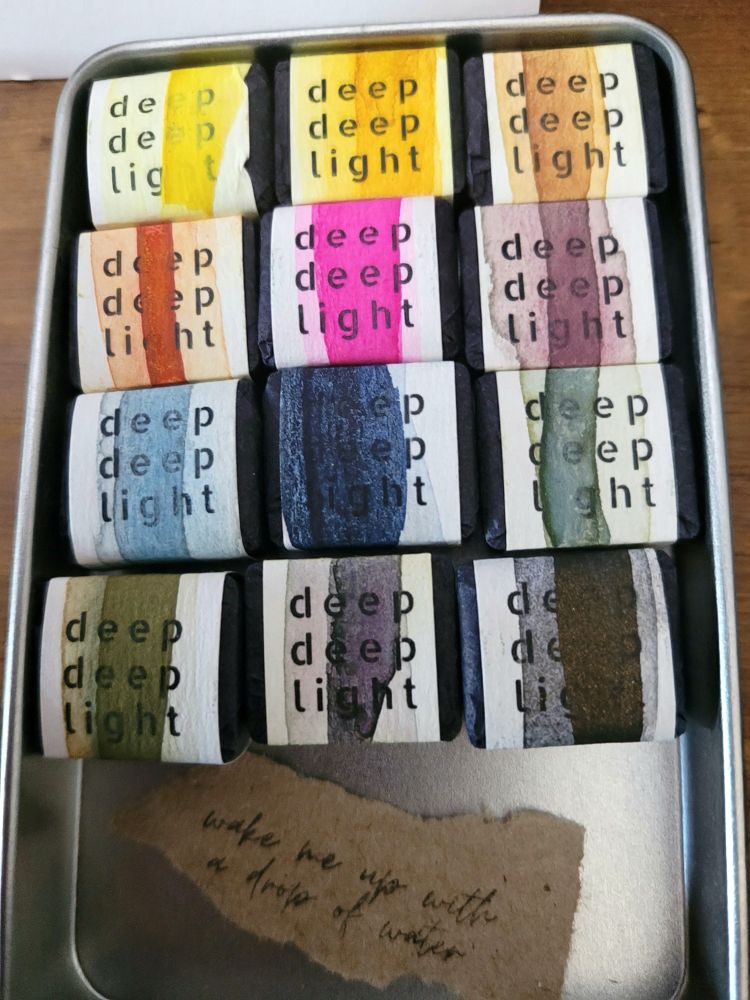 deep
deep
light
deep
deep
light
deep
deep
light
deep
deep
light
deep
deep
light
deep
deep
light
deep
deep
light
deep
deep
light
deep
deep
light
deep
deep
light
deep
deep
light
deep
deep
light
wake me up with
a drop of water